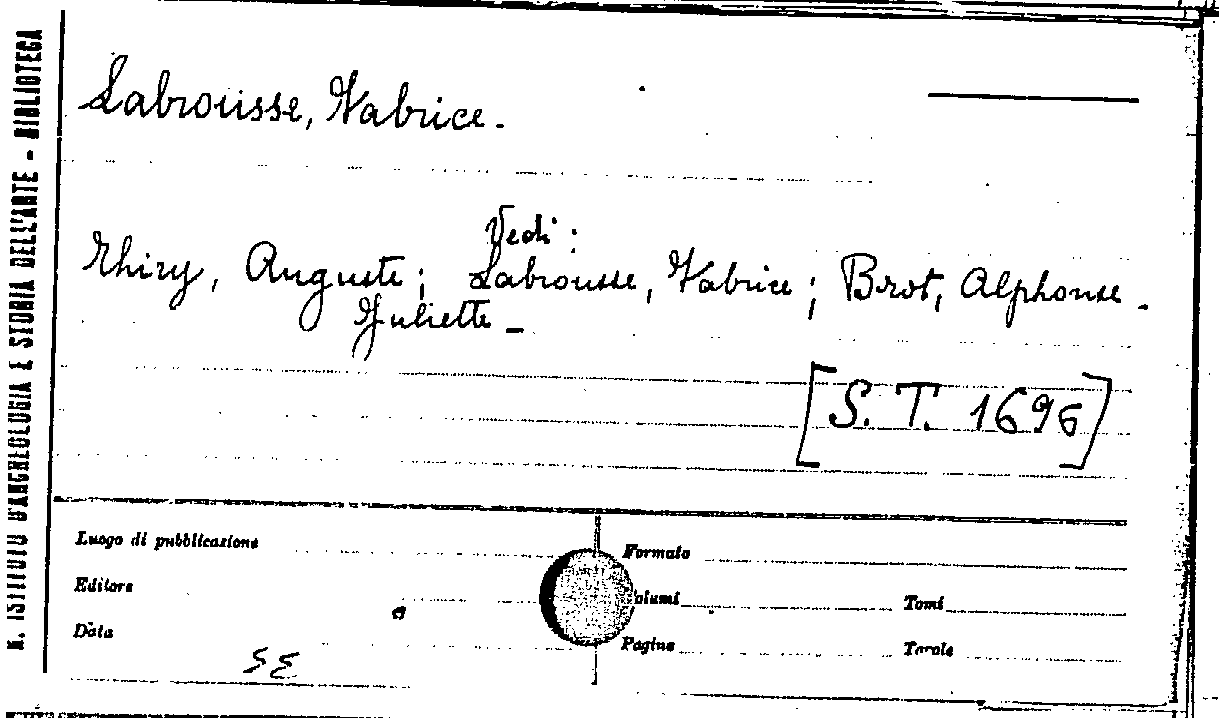 R. ISTITUTO D'ARCHEOLOGIA E STORIA DELL'ARTE - BIBLIOTECA
Labrousse, Fabrice.
Vedi:
Thiry, Auguste; Labrousse, Fabrice; Brot, Alphonse.
Juliette -
[S. T. 1696]
Luogo di pubblicazione
Formato
Editore
Volumi
Tomi
Data
Pagine
Tavole